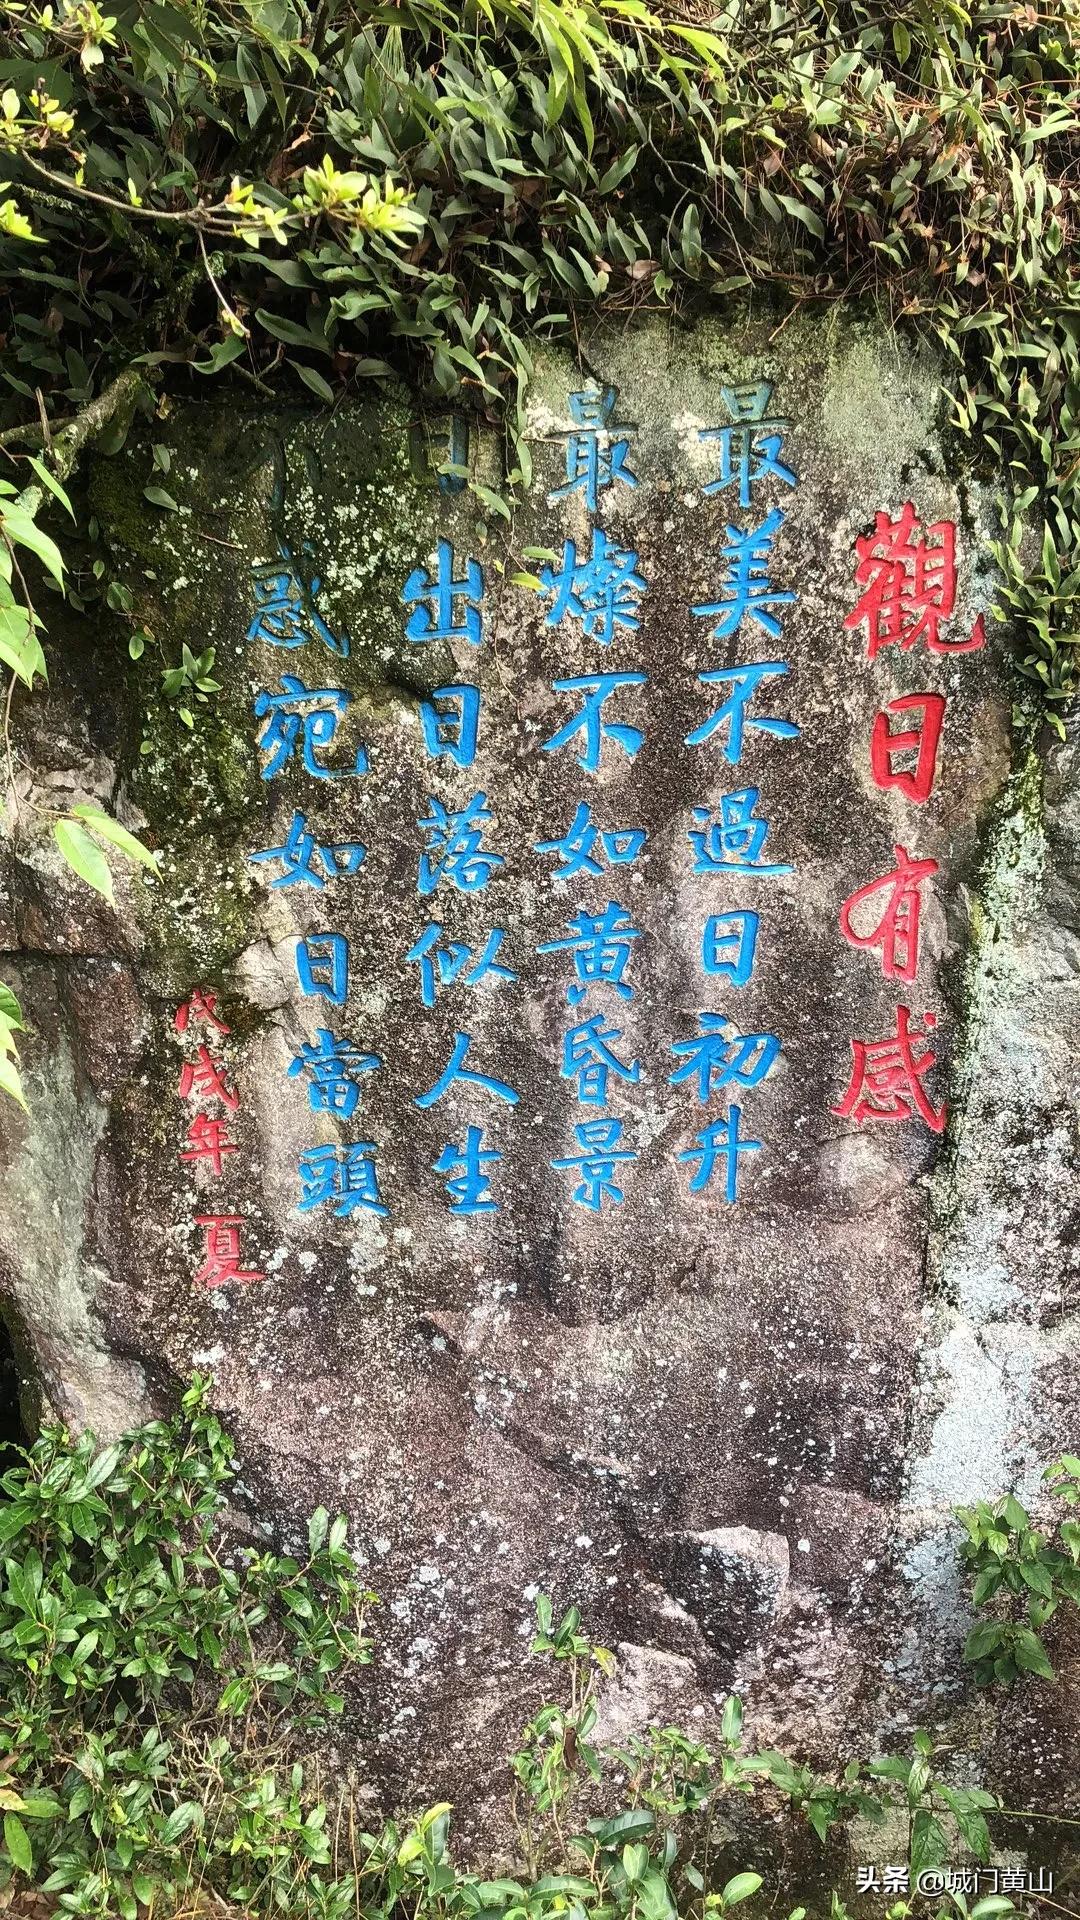 觀日有感
最美不過日初升
最燦不如黄昏景
日出日落似人生
不惑宛如日當頭
戊戌年 夏
头条 @城门黄山